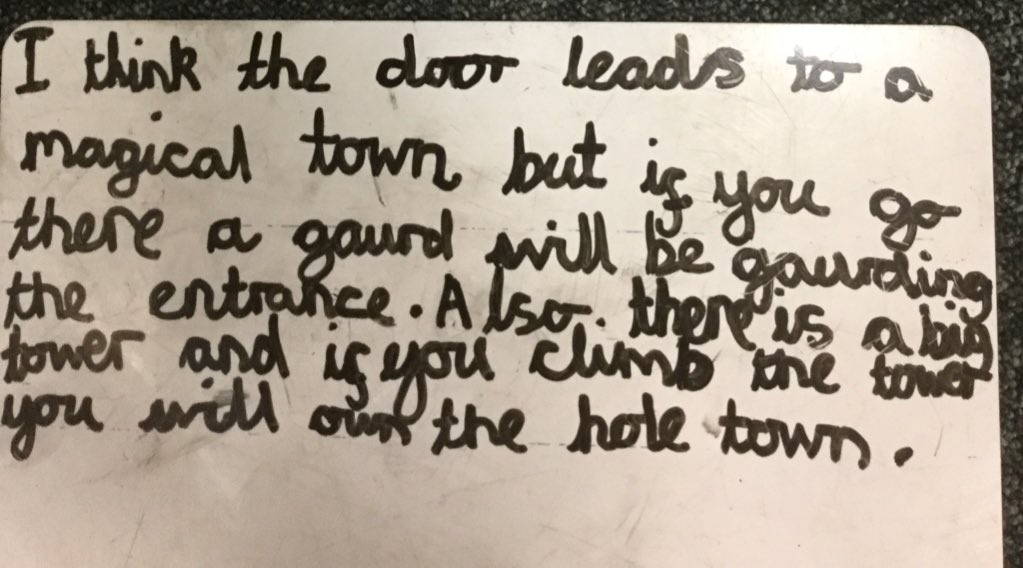 I think the door leads to a
magical town but if you go
there a gaurd will be gaurding
the entrance. Also. there is a big
tower and if you climb the tower
you will own the hole town.